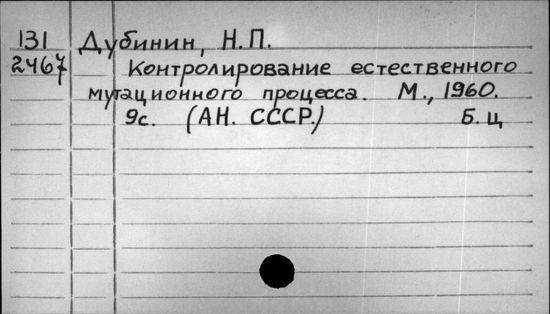 131 Дубинин, Н.П.
2467 Контролирование естественного
мутационного процесса. М., 1960.
9с. (АН. СССР.) Б.ц